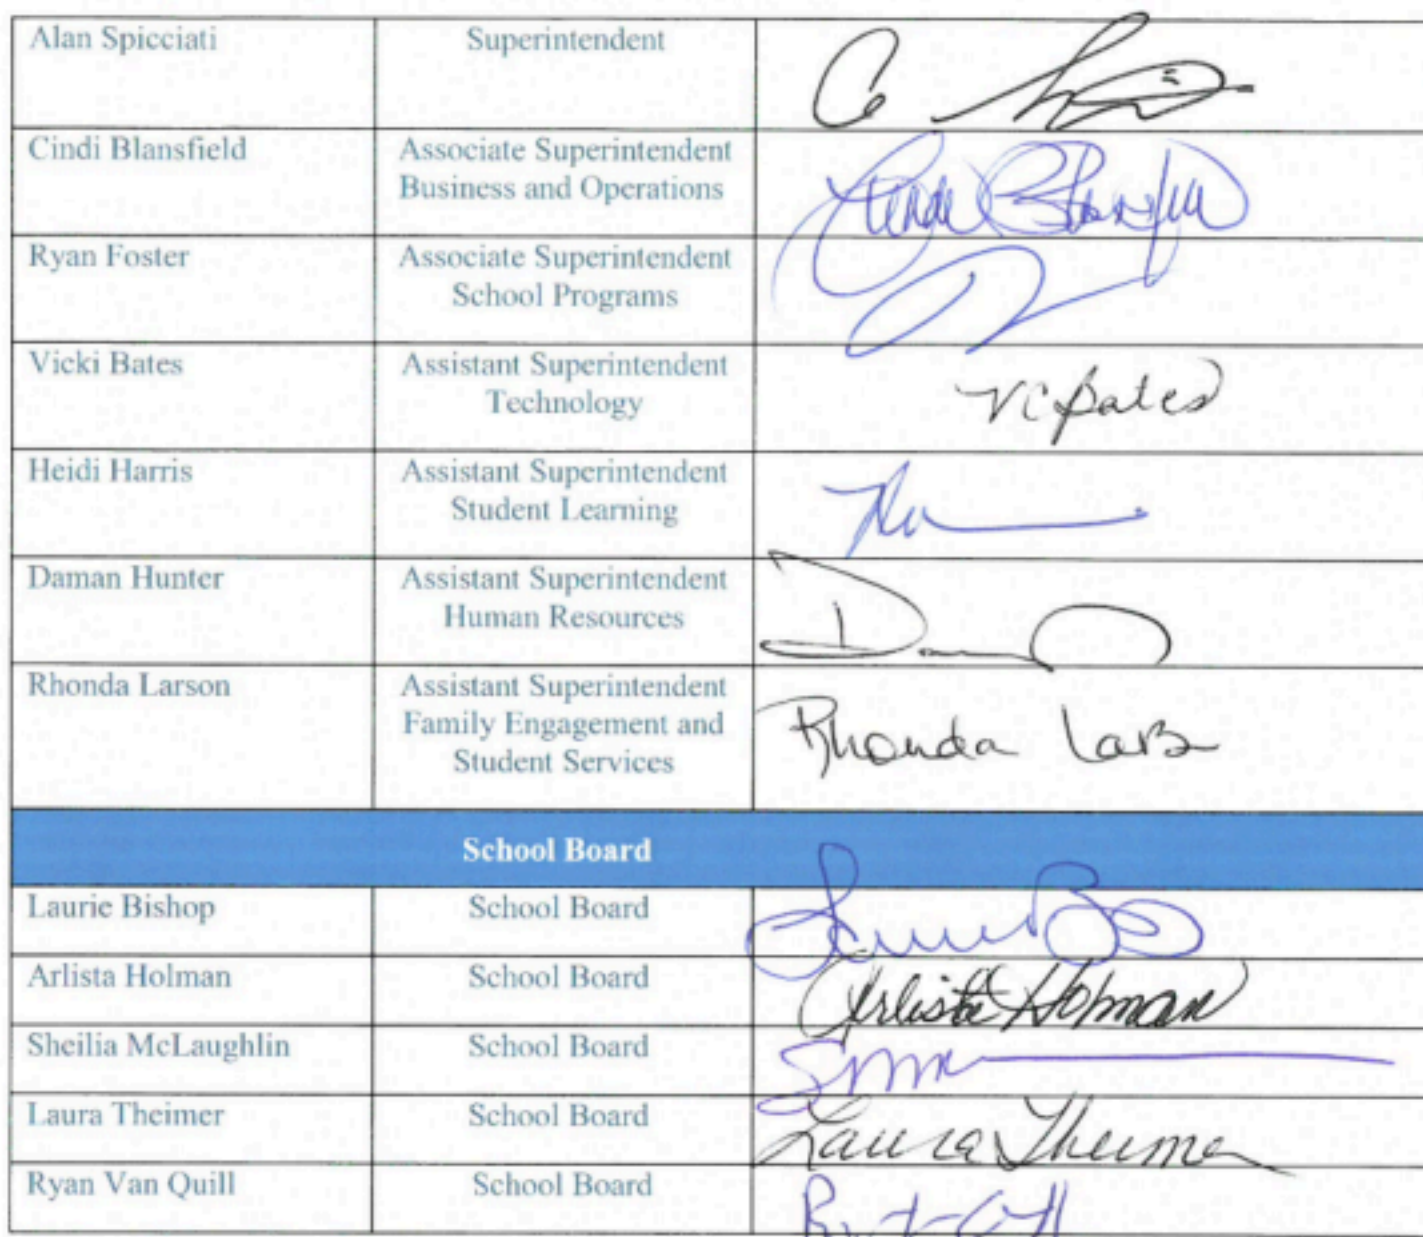 Alan Spicciati Superintendent
Cindi Blansfield Associate Superintendent
Business and Operations
Ryan Foster Associate Superintendent
School Programs
Vicki Bates Assistant Superintendent VCBates
Technology
Heidi Harris Assistant Superintendent
Student Learning
Daman Hunter Assistant Superintendent
Human Resources
Rhonda Larson Assistant Superintendent
Family Engagement and Rhonda Lars
Student Services
School Board
Laurie Bishop School Board
Arlista Holman School Board Arlista Holman
Sheilia McLaughlin School Board
Laura Theimer School Board Laura Theimer
Ryan Van Quill School Board